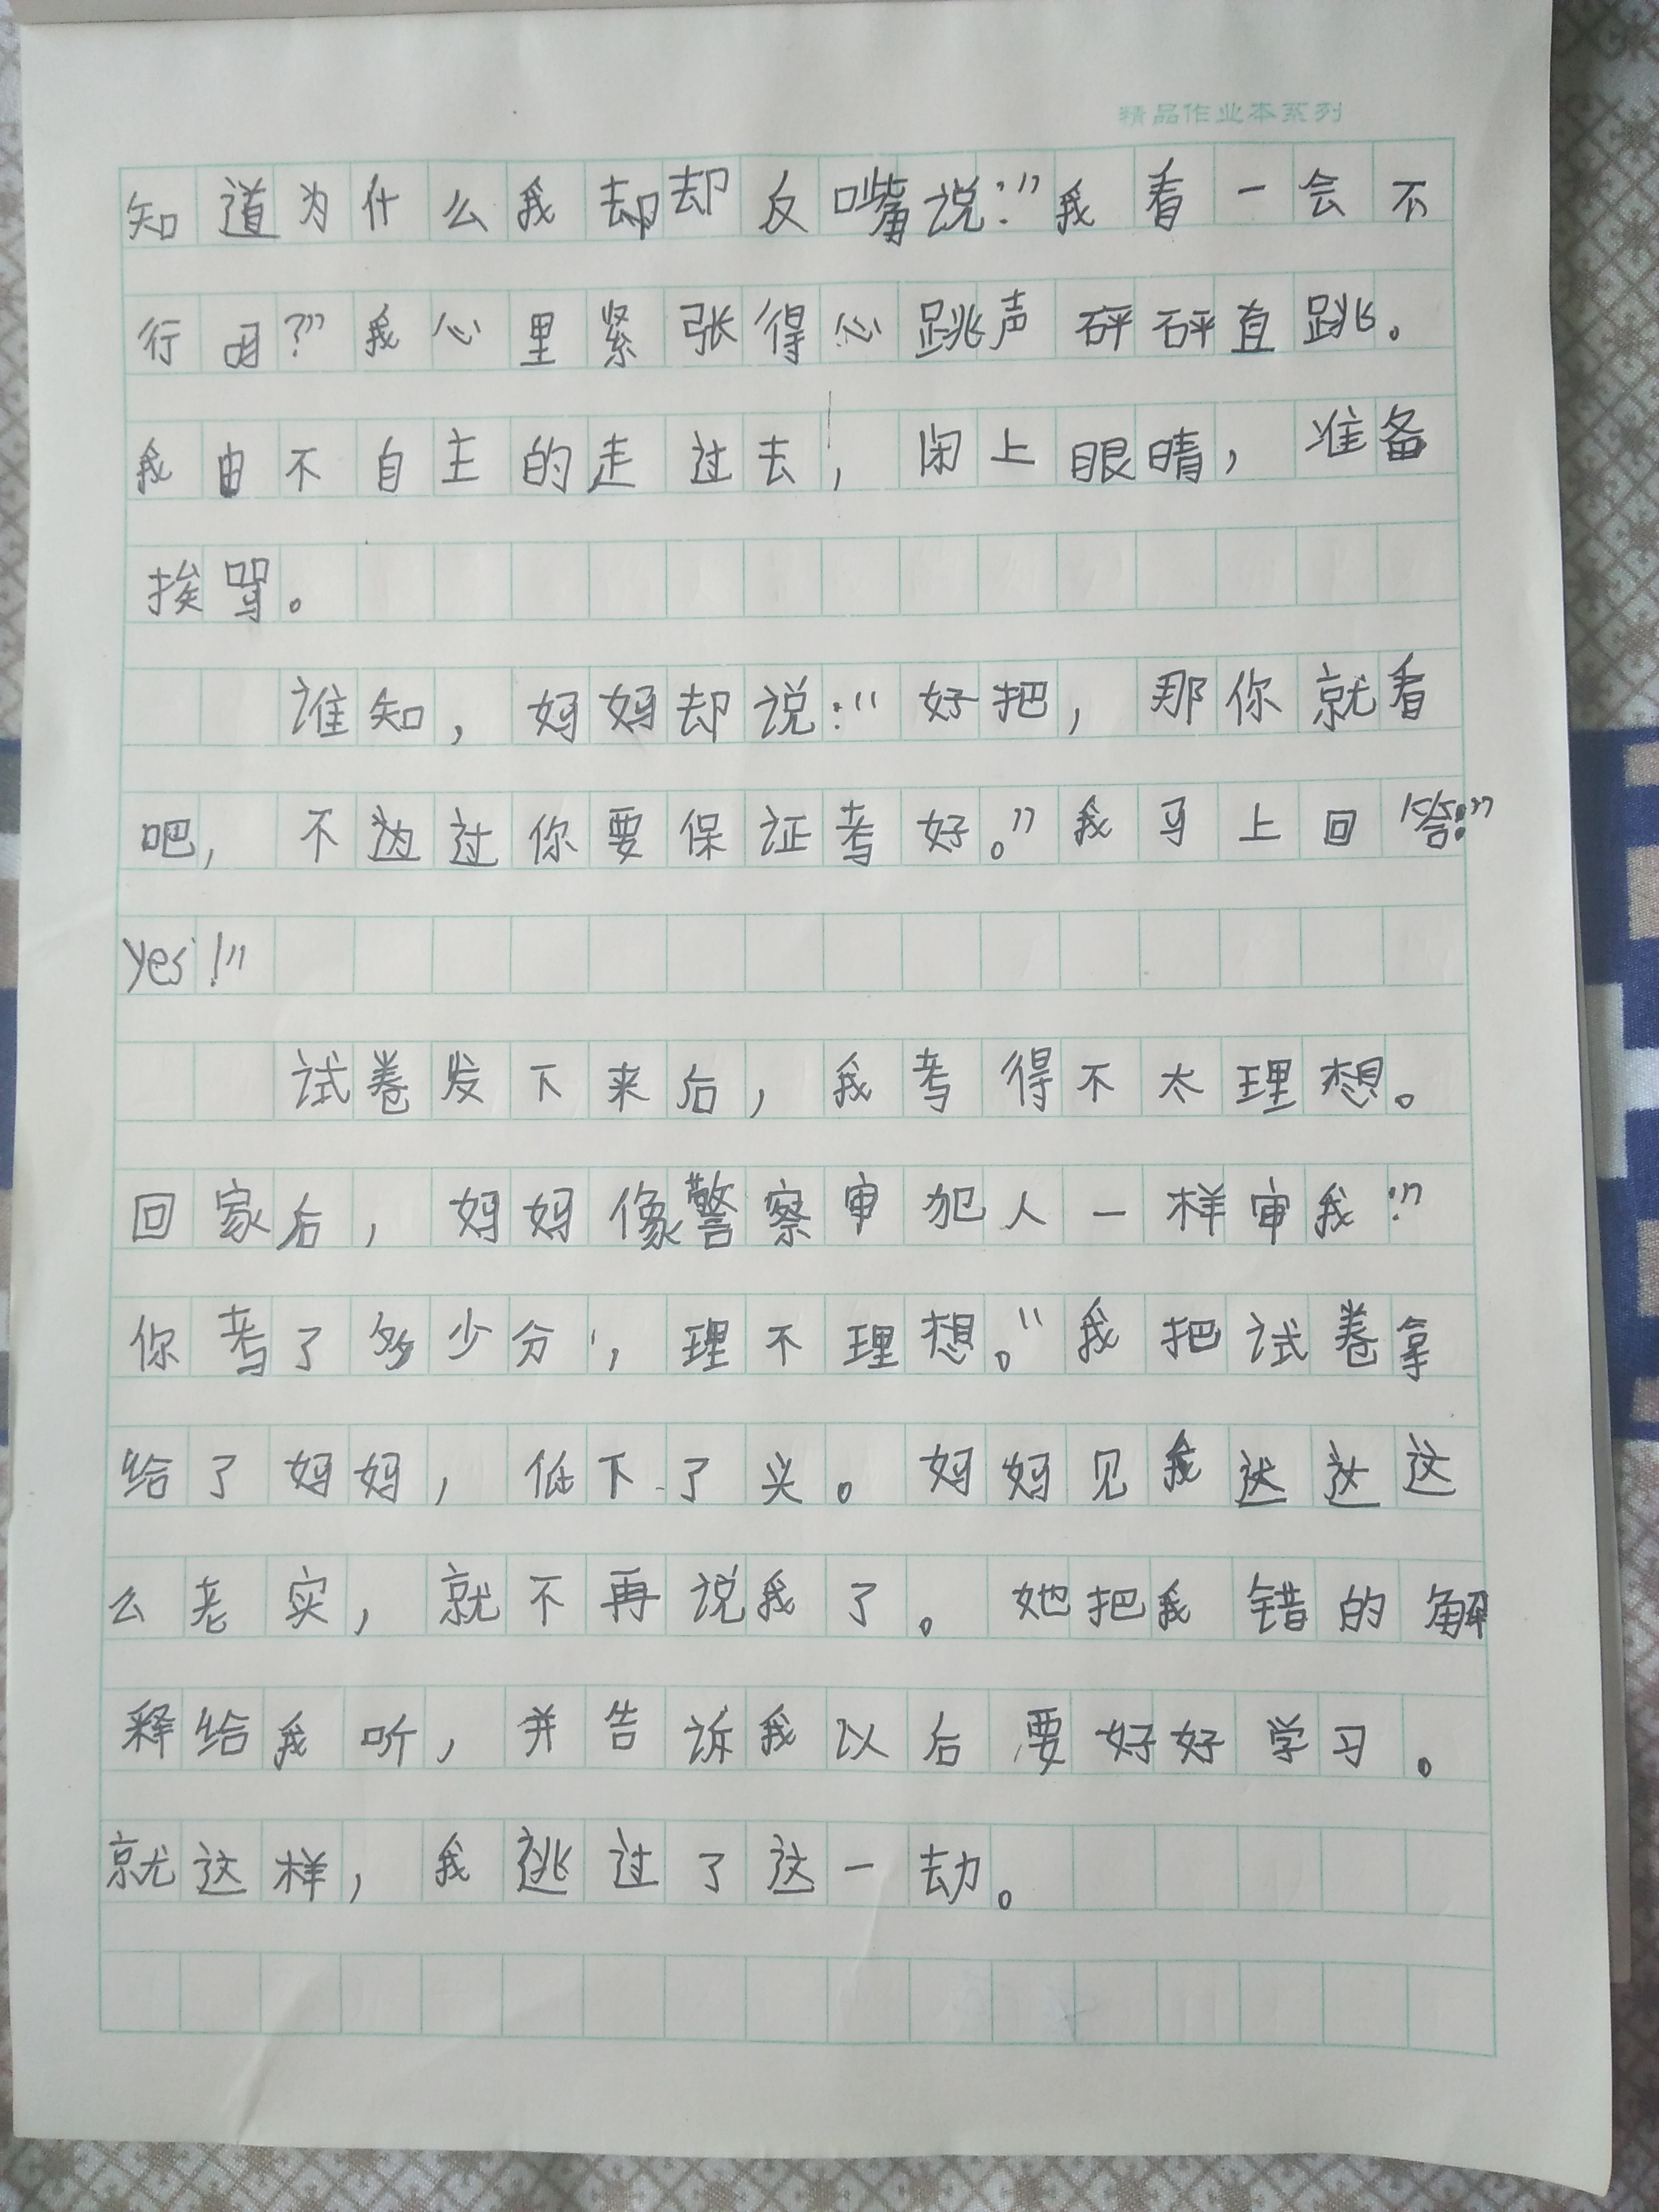 精品作业本系列
知道为什么我却却反嘴说:"我看一会不
行吗?"我心里紧张得心跳声砰砰直跳。
我由不自主的走过去,闭上眼晴,准备
挨骂。
谁知,妈妈却说:"好把,那你就看
吧,不过你要保证考好。"我马上回答:"
yes!"
试卷发下来后,我考得不太理想。
回家后,妈妈像警察审犯人一样审我:"
你考了多少分,理不理想。"我把试卷拿
给了妈妈,低下了头。妈妈见我这这这
么老实,就不再说我了。她把我错的解
释给我听,并告诉我以后要好好学习。
就这样,我逃过了这一劫。